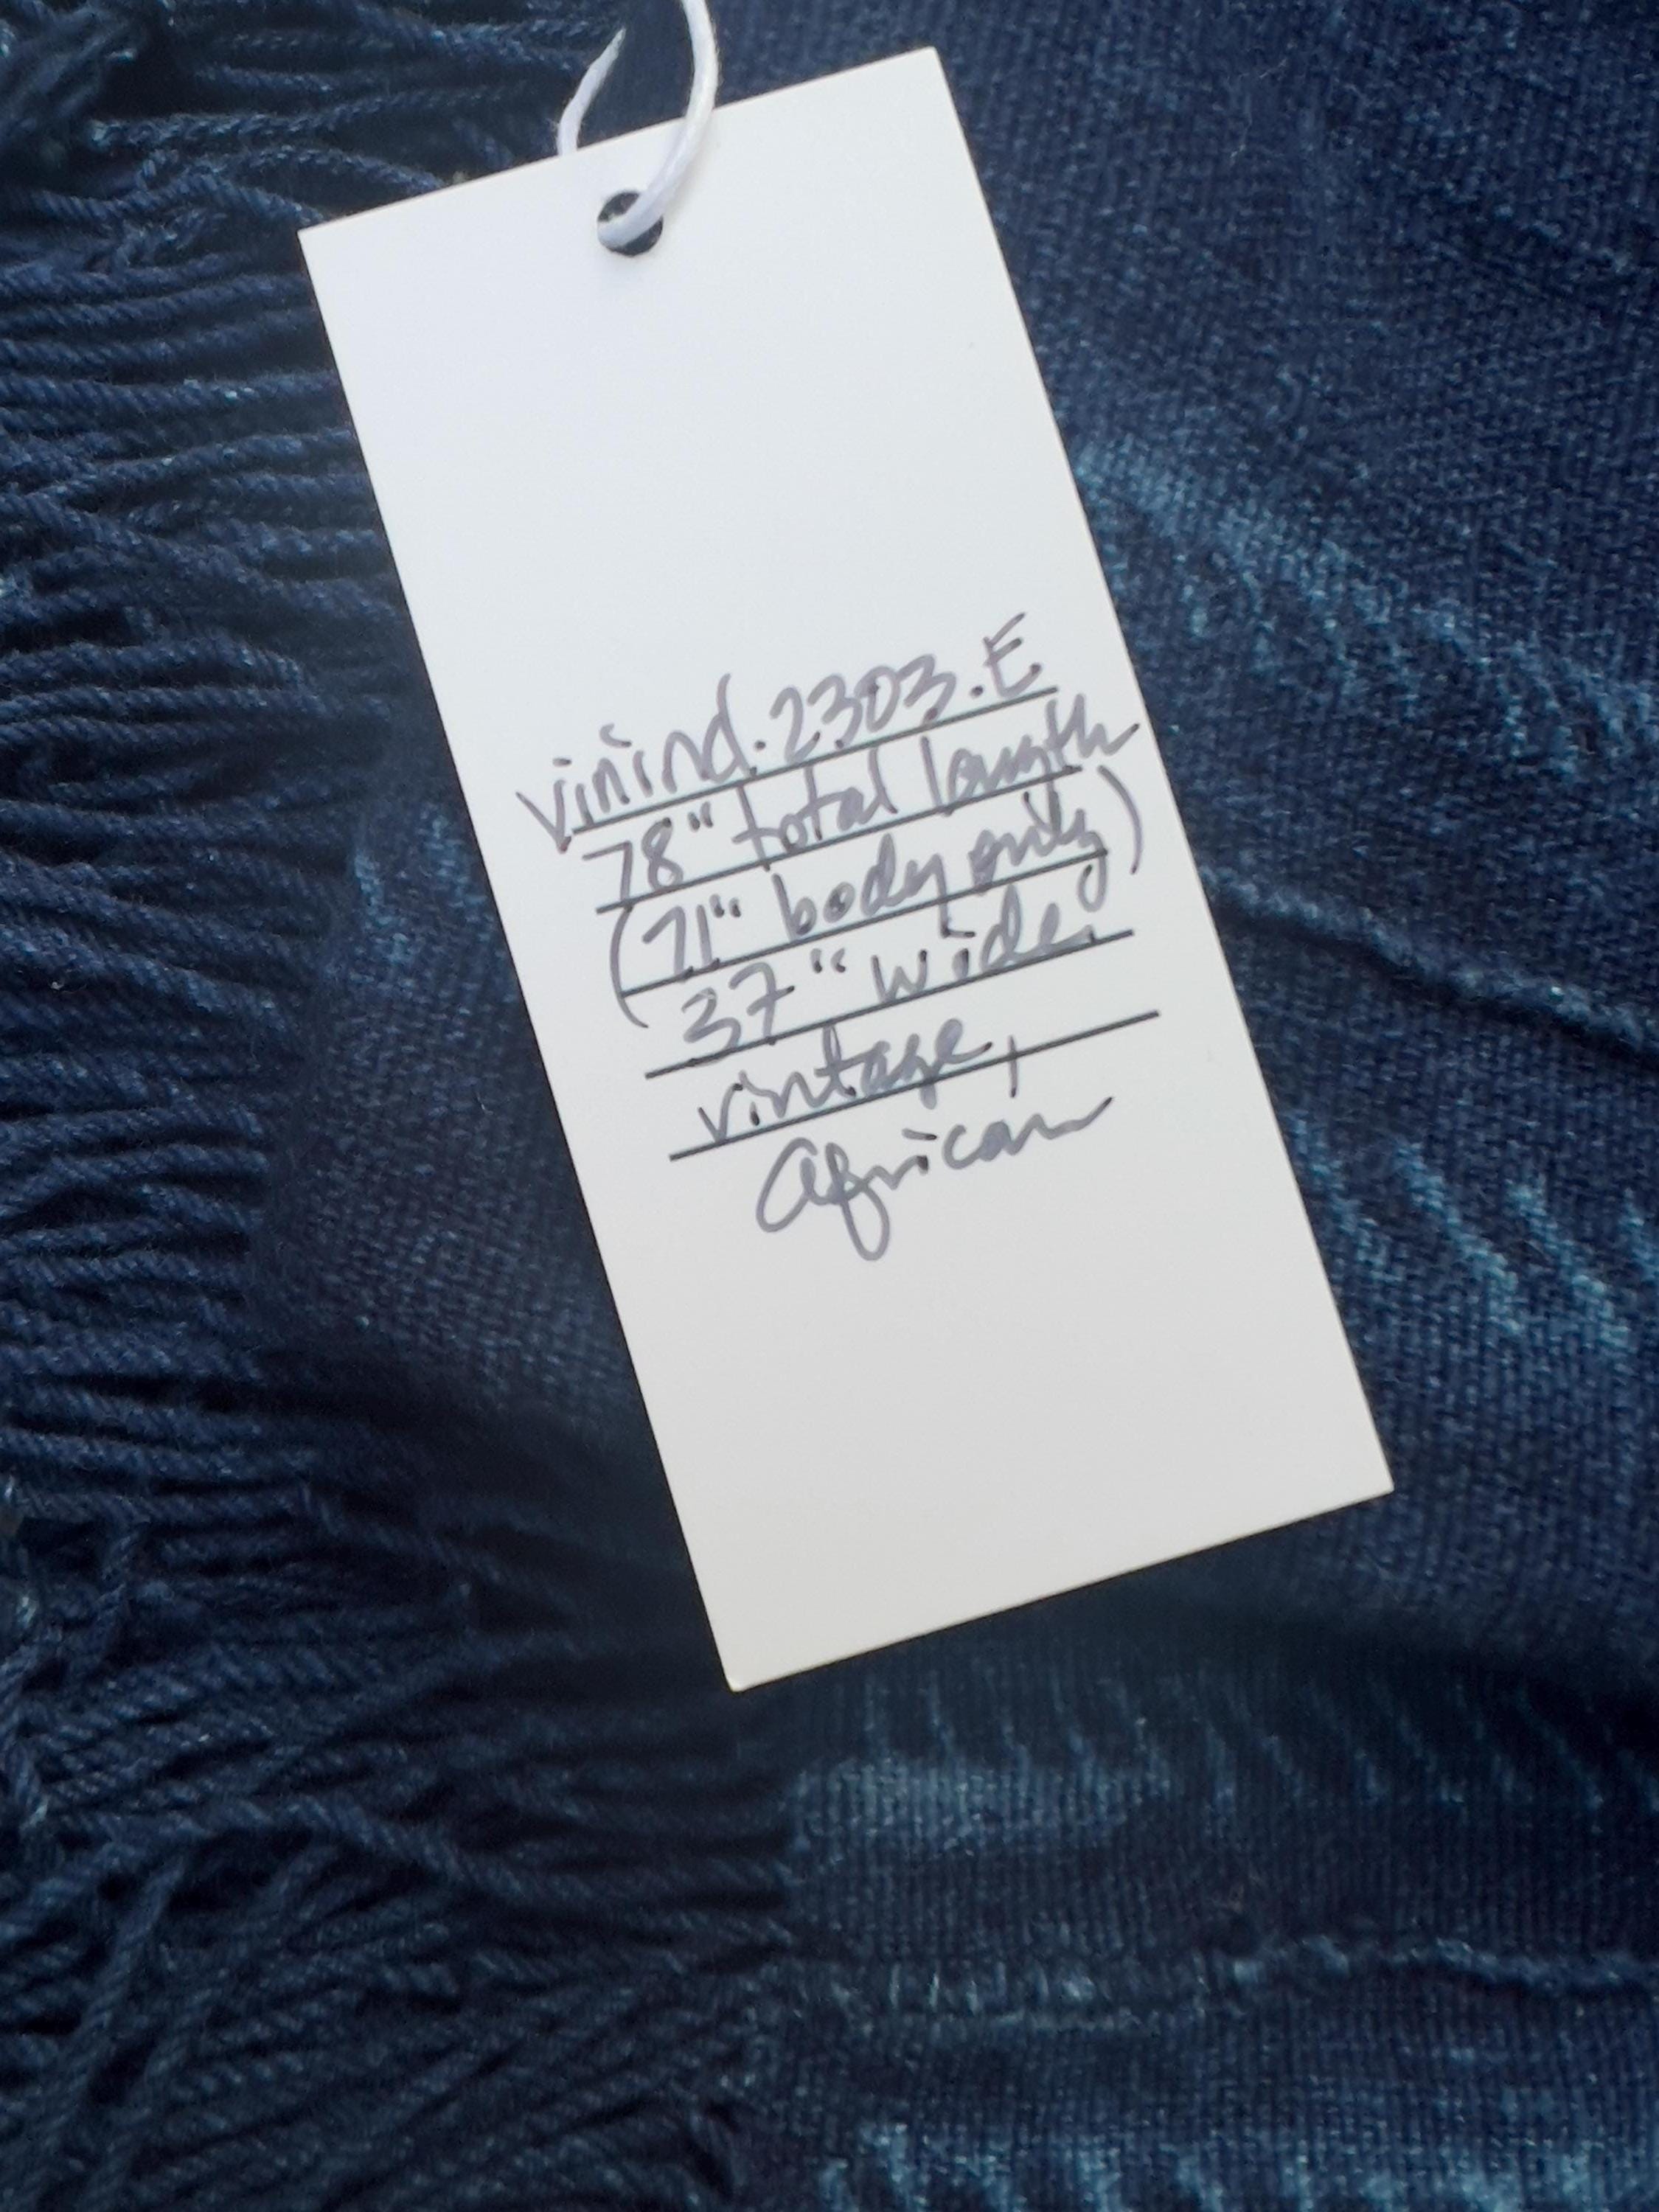 vinind.2303.E
78" total length
(71" body only)
37" wide.
vintage,
African